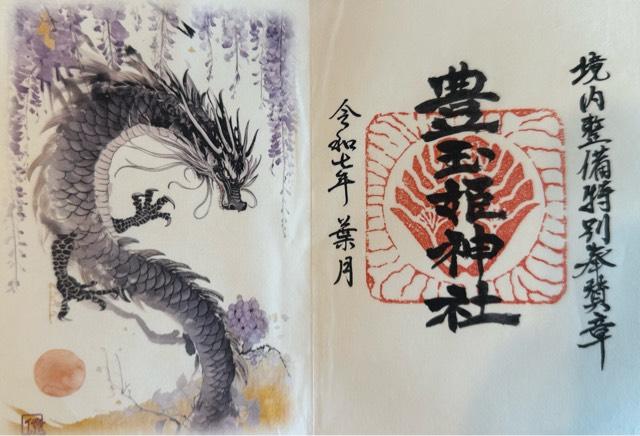 境内整備特別奉賛章
豊玉姫神社
令和七年 葉月